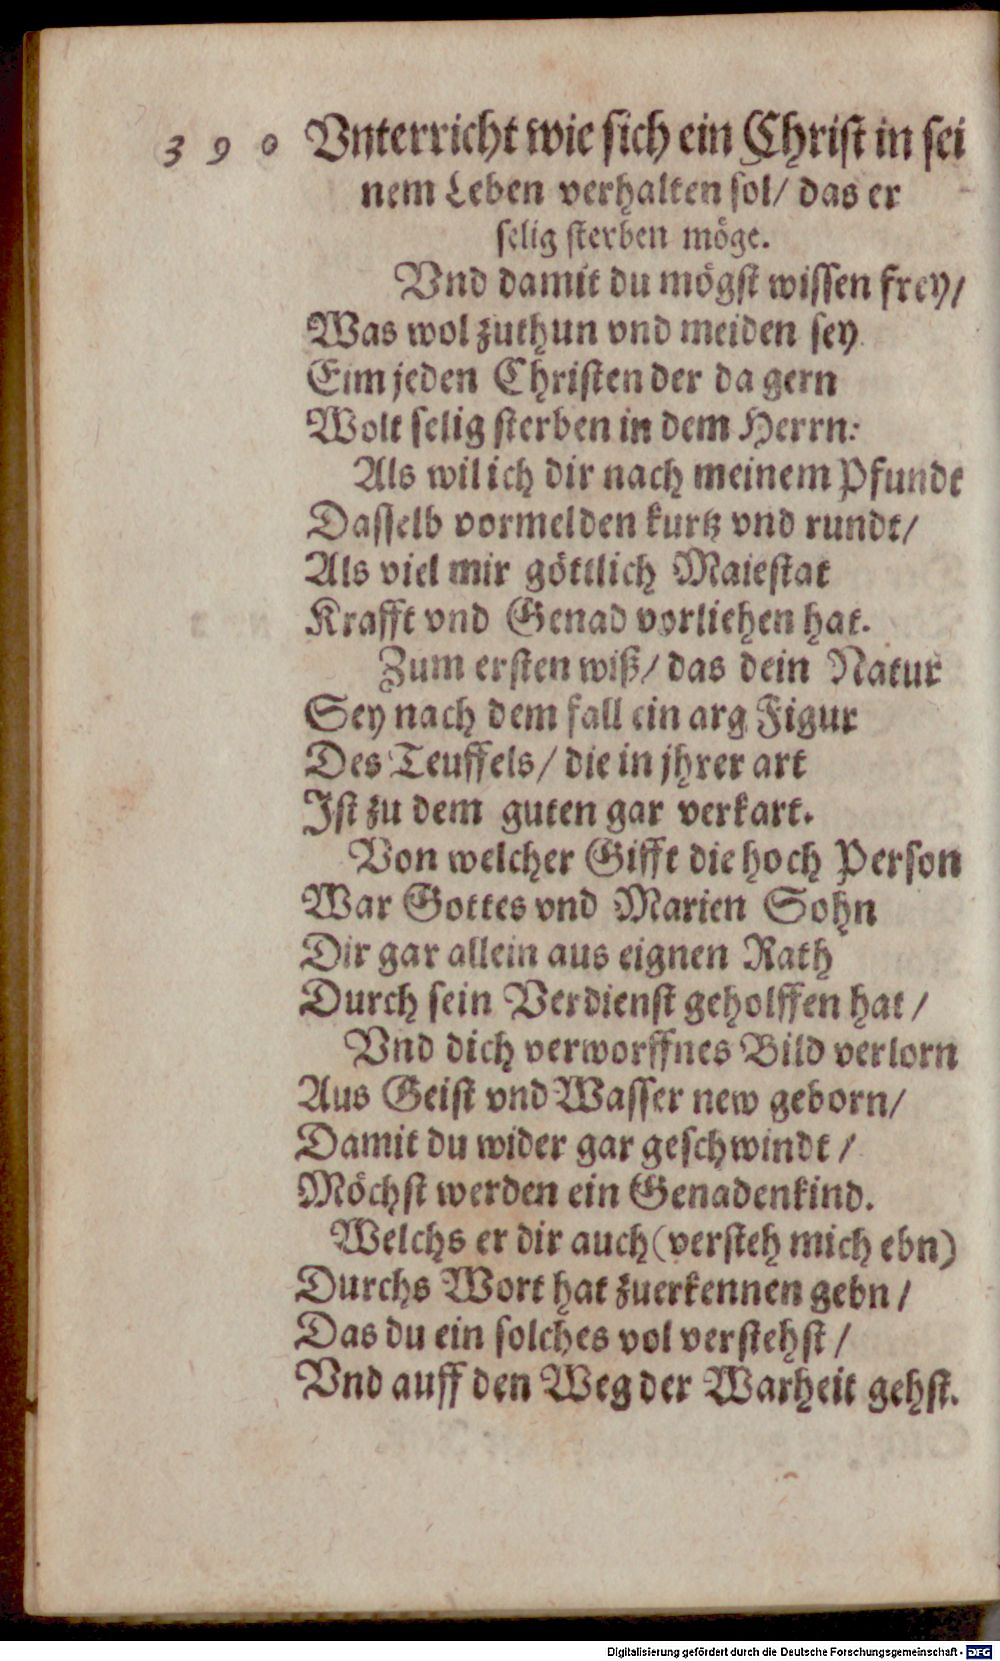 390 Vnterricht wie sich ein Christ in sei
nem Leben verhalten sol/ das er
selig sterben möge.
Vnd damit du mögst wissen frey/
Was wol zuthun vnd meiden sey
Eim jeden Christen der da gern
Wolt selig sterben in dem Herrn:
Als wil ich dir nach meinem Pfundt
Dasselb vormelden kurtz vnd rundt/
Als viel mir göttlich Maiestat
Krafft vnd Genad vorliehen hat.
Zum ersten wiß/ das dein Natur
Sey nach dem fall ein arg Figur
Des Teuffels/ die in jhrer art
Ist zu dem guten gar verkart.
Von welcher Gifft die hoch Person
War Gottes vnd Marien Sohn
Dir gar allein aus eignen Rath
Durch sein Verdienst geholffen hat/
Vnd dich verworffnes Bild verlorn
Aus Geist vnd Wasser new geborn/
Damit du wider gar geschwindt/
Möchst werden ein Genadenkind.
Welchs er dir auch (versteh mich ebn)
Durchs Wort hat zuerkennen gebn/
Das du ein solches vol verstehst/
Vnd auff den Weg der Warheit gehst.
Digitalisierung gefördert durch die Deutsche Forschungsgemeinschaft - DFG